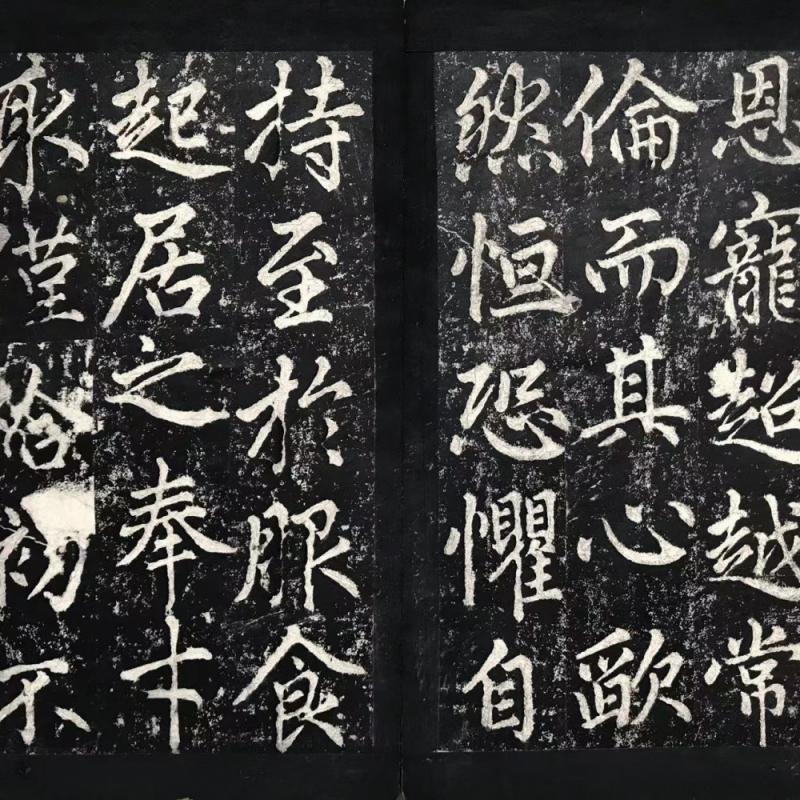 恩寵超越常
倫而其心欿
然恒恐懼自
持至於服食
起居之奉才
取僅給初不